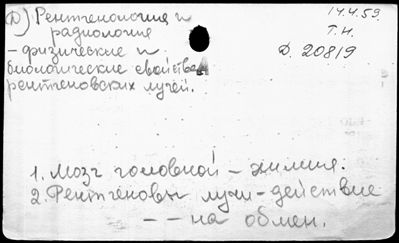 Д) Рентгенология и
радиология
– физические и
биологические свойства
рентгеновских лучей.
14.4.59.
Т.Н.
Д. 20819
1. Мозг головной – химия.
2. Рентгеновы лучи – действие
– – на обмен.